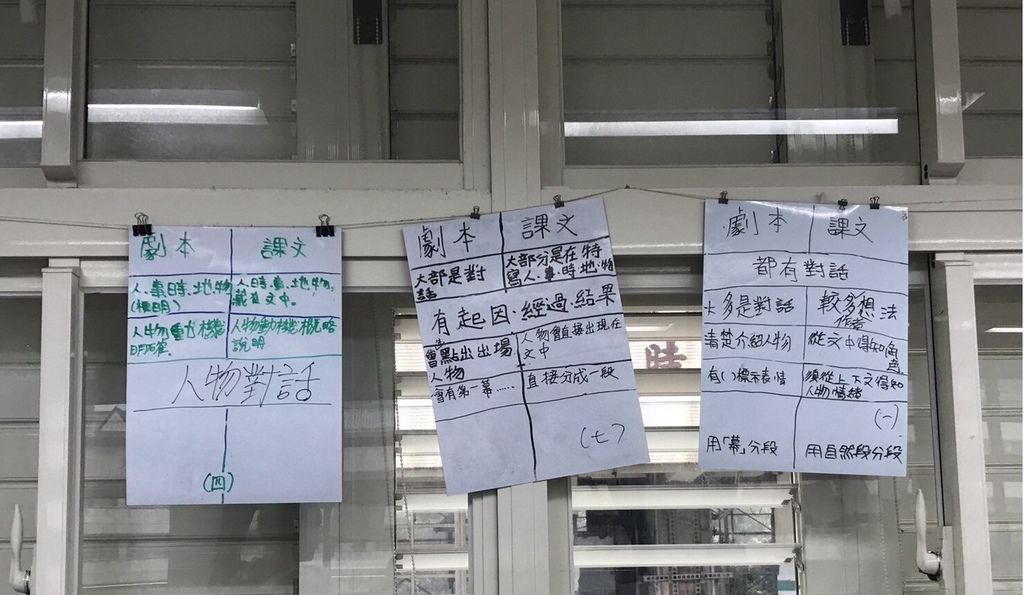 劇本 課文
人、事、時、地、物 人、時、事、地、物,
(標明) 藏在文中。
人物動機 人物動機概略
明確. 說明
人物對話
(四)
劇本 課文
大部是對 大部分是在特
話 寫人、事、時、地、物
有起因、經過、結果
會點出出場 人物會直接出現在
人物 文中
會有第一幕…… 直接分成一段
(七)
劇本 課文
都有對話
大多是對話 較多想法
作者
清楚介紹人物 從文中得知角色
有( )標示表情 須從上下文得知
人物情緒
(一)
用「幕」分段 用自然段分段